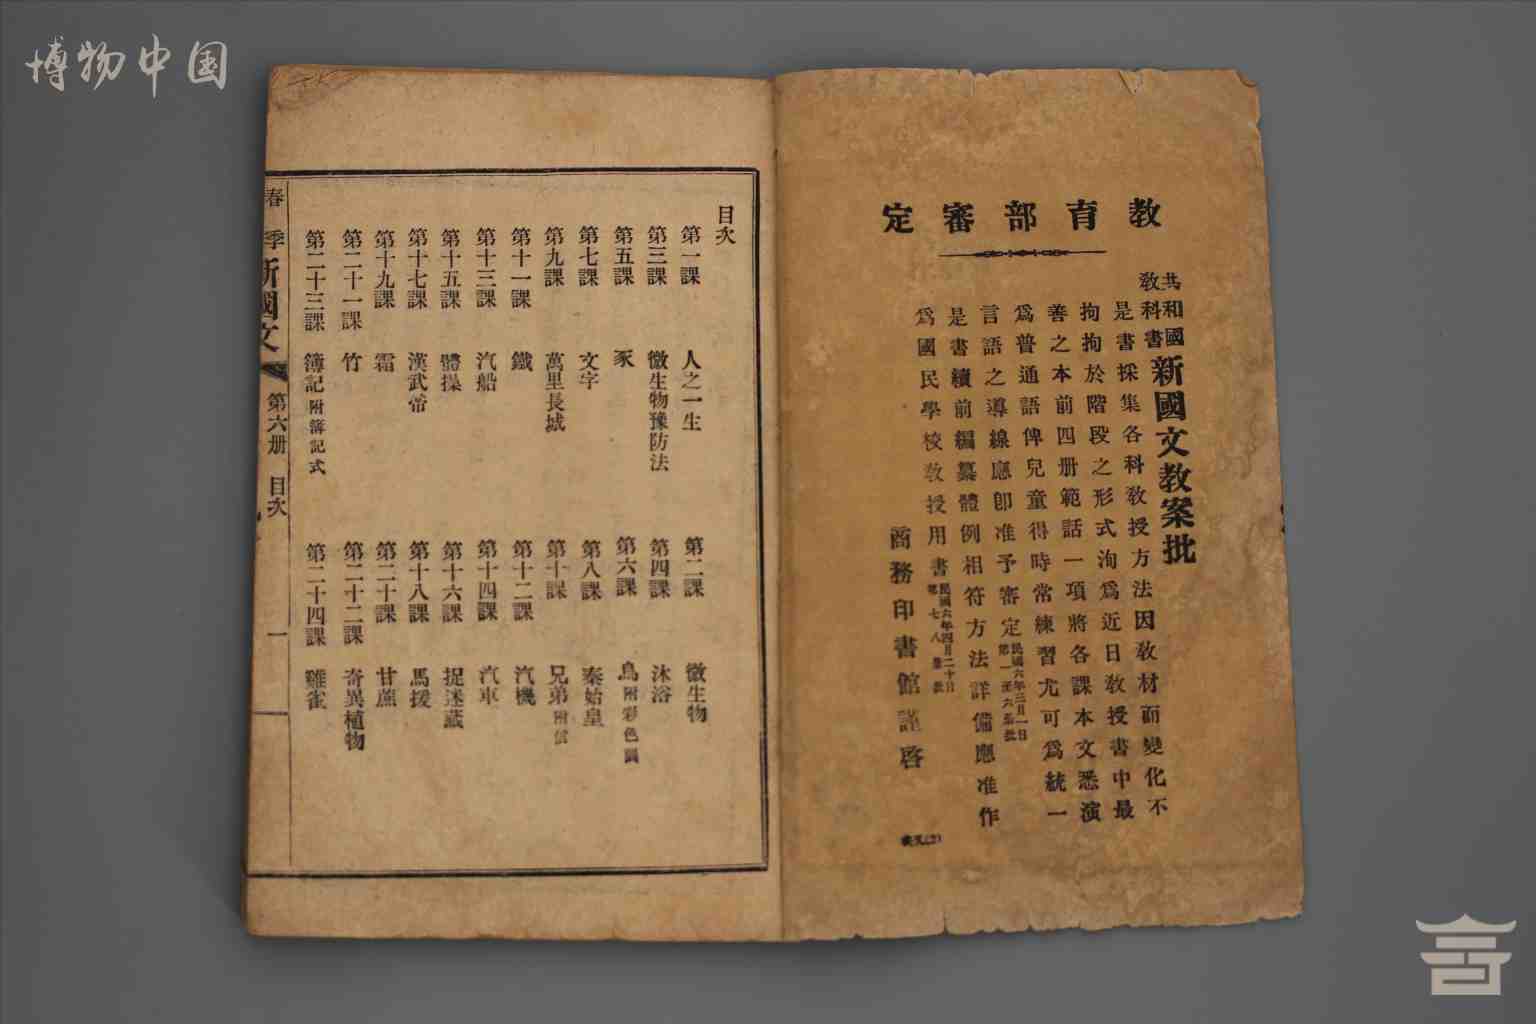 博物中国
教育部審定
共和國教科書新國文教案批
是書採集各科教授方法因教材而變化不
拘拘於階段之形式洵為近日教授書中最
善之本前四册範話一項將各課本文悉演
為普通語俾兒童得時常練習尤可為統一
言語之導線應即准予審定民國六年三月一日第一至六册批
是書續前編纂體例相符方法詳備應准作
為國民學校教授用書民國六年四月二十日第七八册批
商務印書館謹啓
目次
第一課 人之一生 第二課 微生物
第三課 微生物豫防法 第四課 沐浴
第五課 豕 第六課 鳥附彩色圖
第七課 文字 第八課 秦始皇
第九課 萬里長城 第十課 兄弟附信
第十一課 鐵 第十二課 汽機
第十三課 汽船 第十四課 汽車
第十五課 體操 第十六課 捉迷藏
第十七課 漢武帝 第十八課 馬援
第十九課 霜 第二十課 甘蔗
第二十一課 竹 第二十二課 奇異植物
第二十三課 簿記附簿記式 第二十四課 雞雀
春季新國文 第六册 目次 一